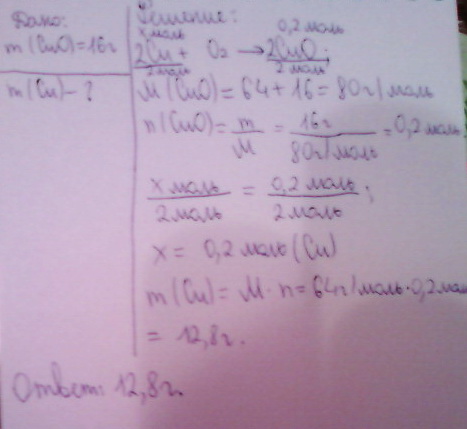 Дано:
m(CuO)=16г
m(Cu)-?
Решение:
x моль 0,2 моль
2Cu + O₂ → 2CuO;
2 моль 2 моль
M(CuO)=64+16=80г/моль
n(CuO)= m/M = 16г/80г/моль =0,2 моль
x моль/2 моль = 0,2 моль/2 моль;
x= 0,2 моль(Cu)
m(Cu)= M·n=64г/моль·0,2мол
= 12,8г.
Ответ: 12,8г.